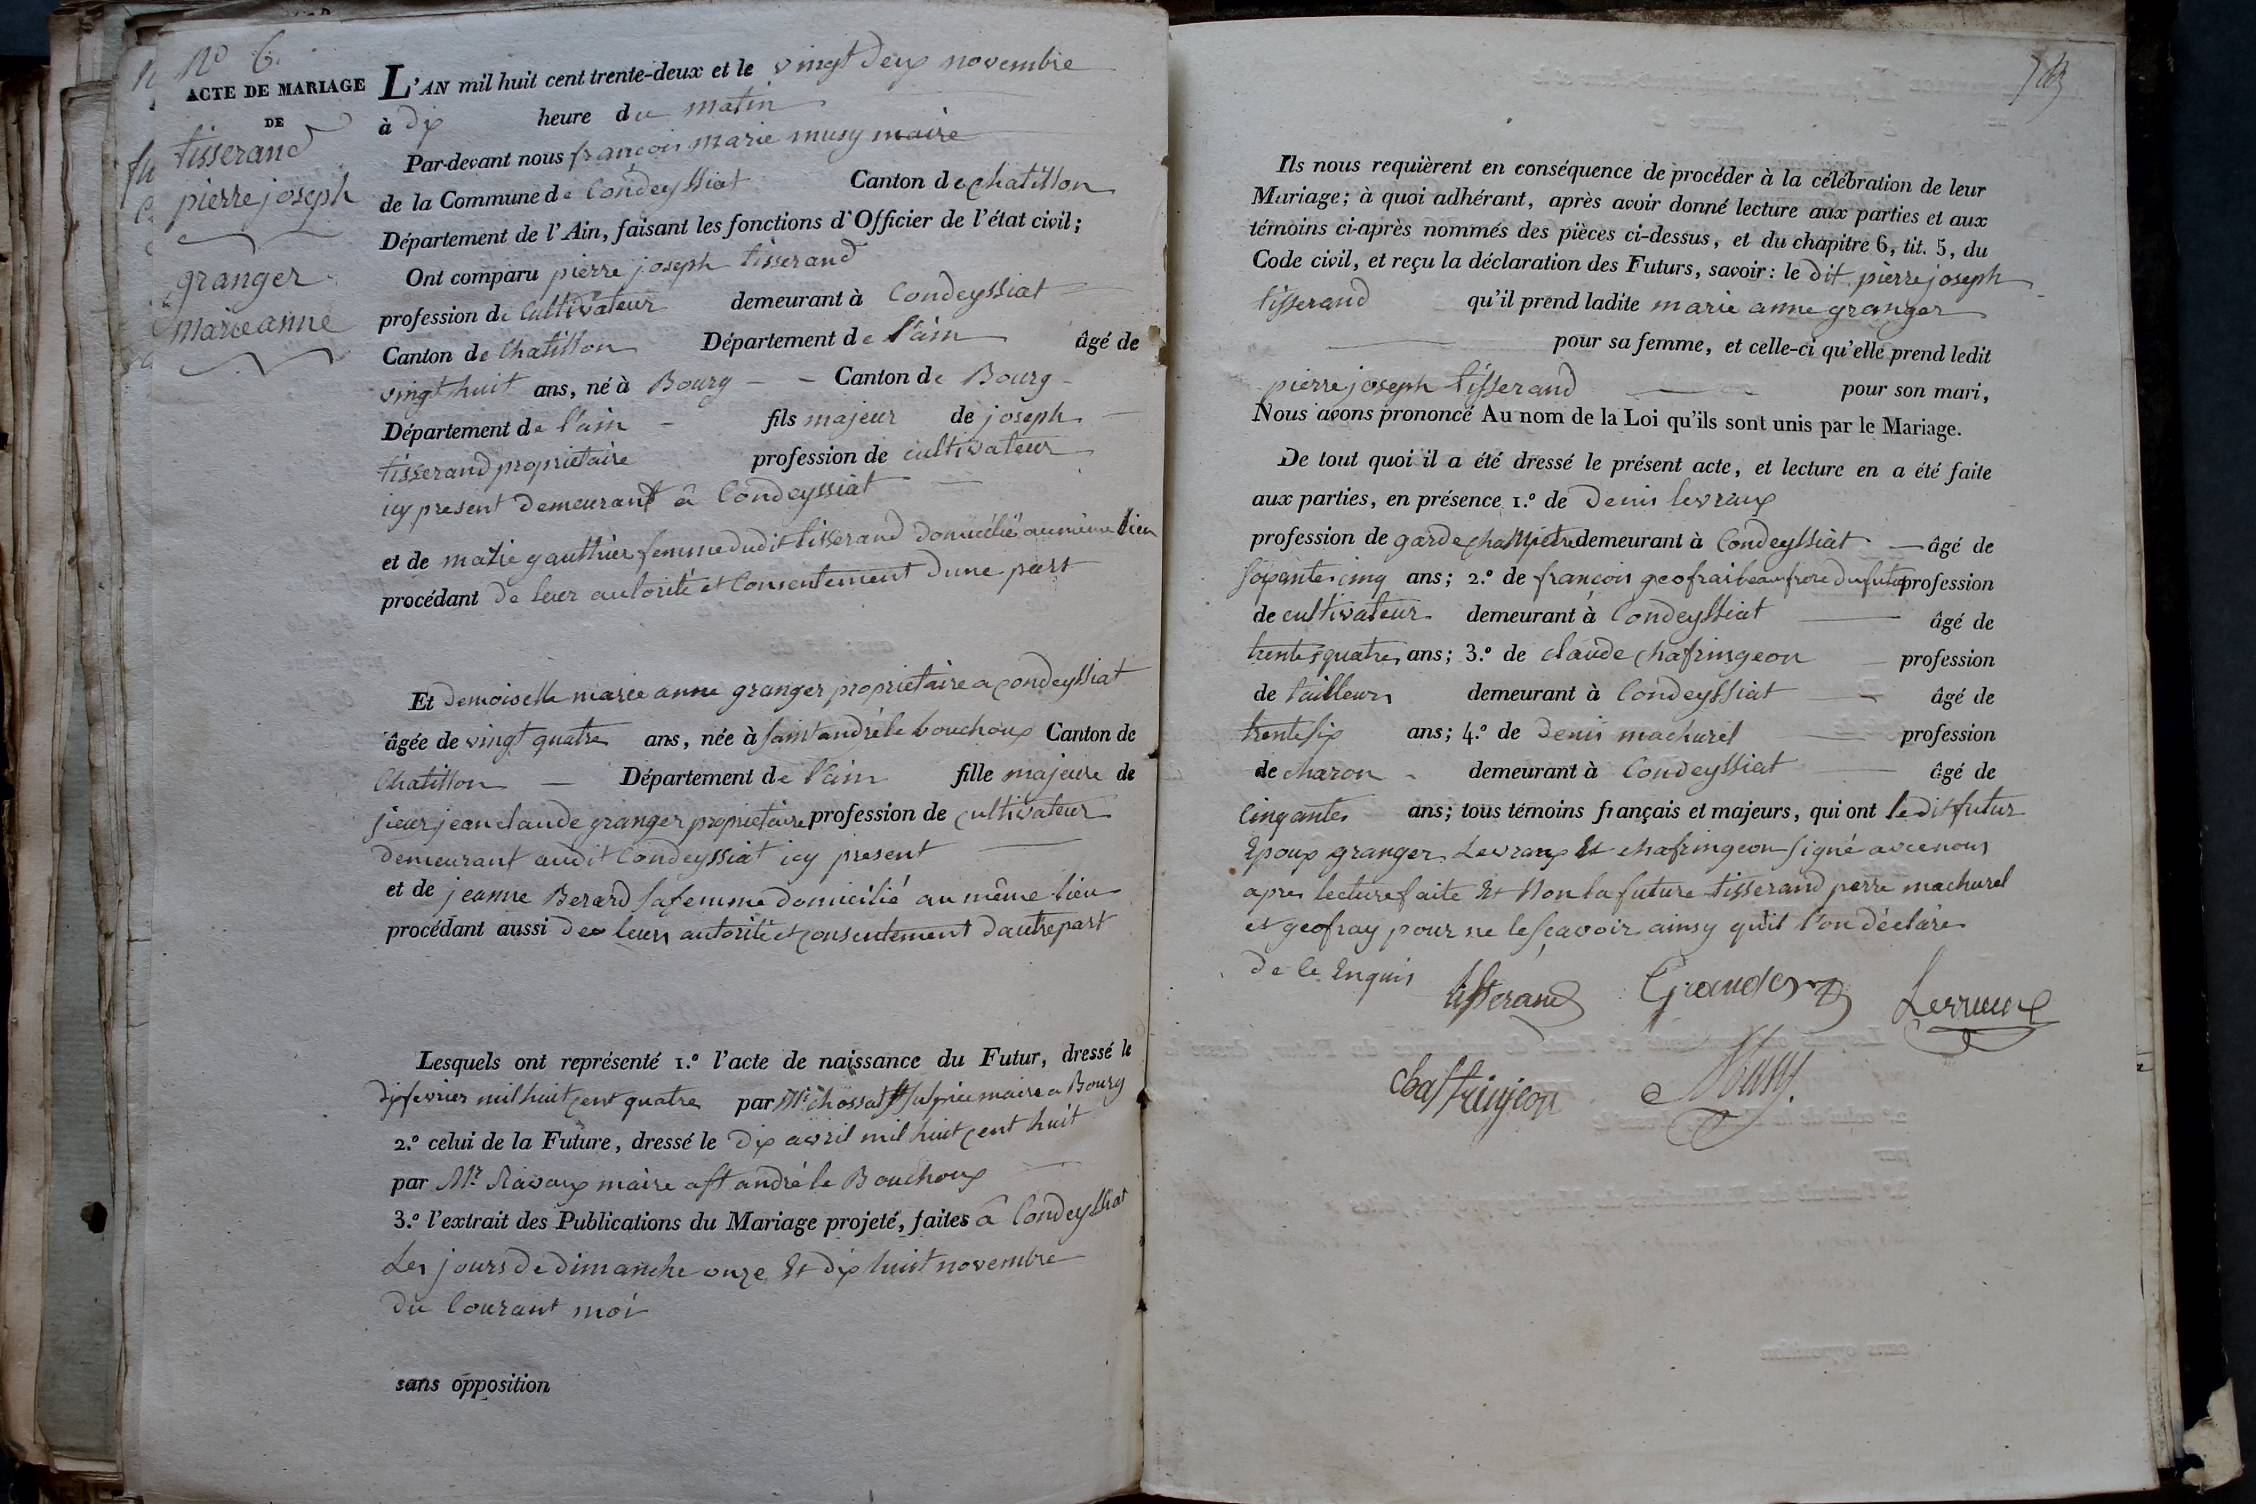 N° 6.
ACTE DE MARIAGE
DE
tisserand
pierre joseph
granger
marie anne
L'AN mil huit cent trente-deux et le vingt deux novembre
à dix heure du matin
Par-devant nous françois marie musy maire
de la Commune de Condeyssiat Canton de chatillon
Département de l'Ain, faisant les fonctions d'Officier de l'état civil;
Ont comparu pierre joseph tisserand
profession de Cultivateur demeurant à Condeyssiat
Canton de Chatillon Département de l'ain âgé de
vingt huit ans, né à Bourg Canton de Bourg
Département de l'ain fils majeur de joseph
tisserand proprietaire profession de cultivateur
icy present demeurant à Condeyssiat
et de marie gauthier femme dudit tisserand domicilié au même lieu
procédant de leur autorité et Consentement d'une part
Et demoiselle marie anne granger proprietaire a Condeyssiat
âgée de vingt quatre ans, née à saint andré le bouchoux Canton de
Chatillon Département de l'ain fille majeure de
sieur jean claude granger proprietaire profession de cultivateur
demeurant audit Condeyssiat icy present
et de jeanne Berard sa femme domicilié au même lieu
procédant aussi de leurs autorité et consentement d'autre part
Lesquels ont représenté 1.° l'acte de naissance du Futur, dressé le
dix fevrier mil huit cent quatre par Mr chossat maire a Bourg
2.° celui de la Future, dressé le dix avril mil huit cent huit
par Mr Ravoux maire a St andré le Bouchoux
3.° l'extrait des Publications du Mariage projeté, faites à Condeyssiat
Les jours de dimanche onze Et dix huit novembre
du Courant moi
sans opposition
Ils nous requièrent en conséquence de procéder à la célébration de leur
Mariage; à quoi adhérant, après avoir donné lecture aux parties et aux
témoins ci-après nommés des pièces ci-dessus, et du chapitre 6, tit. 5, du
Code civil, et reçu la déclaration des Futurs, savoir: le dit pierre joseph
tisserand qu'il prend ladite marie anne granger
pour sa femme, et celle-ci qu'elle prend ledit
pierre joseph tisserand pour son mari,
Nous avons prononcé Au nom de la Loi qu'ils sont unis par le Mariage.
De tout quoi il a été dressé le présent acte, et lecture en a été faite
aux parties, en présence 1.° de Denis levraux
profession de garde champetre demeurant à Condeyssiat âgé de
soixante cinq ans; 2.° de françois geofrai beau frere du futur profession
de cultivateur demeurant à Condeyssiat âgé de
trente quatre ans; 3.° de claude chafringeon profession
de tailleur demeurant à Condeyssiat âgé de
trente six ans; 4.° de Denis machurel profession
de charon demeurant à Condeyssiat âgé de
cinquante ans; tous témoins français et majeurs, qui ont le dit futur
Epoux granger Levraux Et chafringeon signé avec nous
apres lecture faite Et Non la future tisserand perre machurel
et geofray pour ne le sçavoir ainsy qu'il l'on déclaré
de le Enquis
tisserand Grander Levraux
chaffringeon Musy